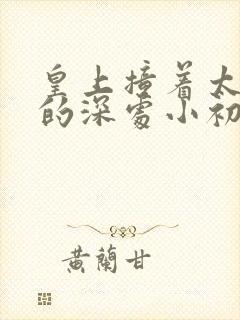 皇上撞着太
的深處小初
黃蘭甘